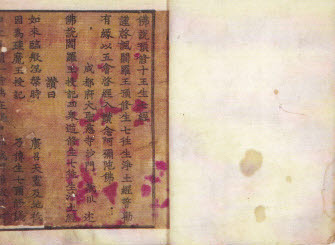 佛說預修十王生七經
謹啓諷閻羅王預修生七往生淨土經誓勸
有緣以五會啓經入讚念阿彌陀佛
成都府大聖慈寺沙門 述
佛說閻羅王授記四衆逆修生七往生淨土經
讚曰
如來臨般涅槃時 廣召天靈及地祇
因爲琰魔王授記 乃傳生七預修儀